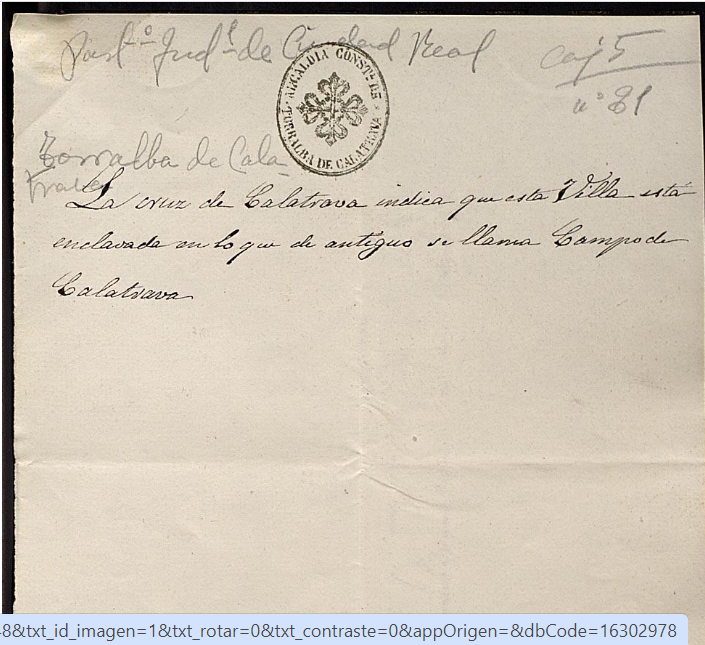 Part.º Jud.l de Ciudad Real
caj 5
nº 81
ALCALDIA CONST.L DE
TORRALBA DE CALATRAVA
Torralba de Cala-
trava
La cruz de Calatrava indica que esta Villa está
enclavada en lo que de antiguo se llama Campo de
Calatrava
8&txt_id_imagen=1&txt_rotar=0&txt_contraste=0&appOrigen=&dbCode=16302978